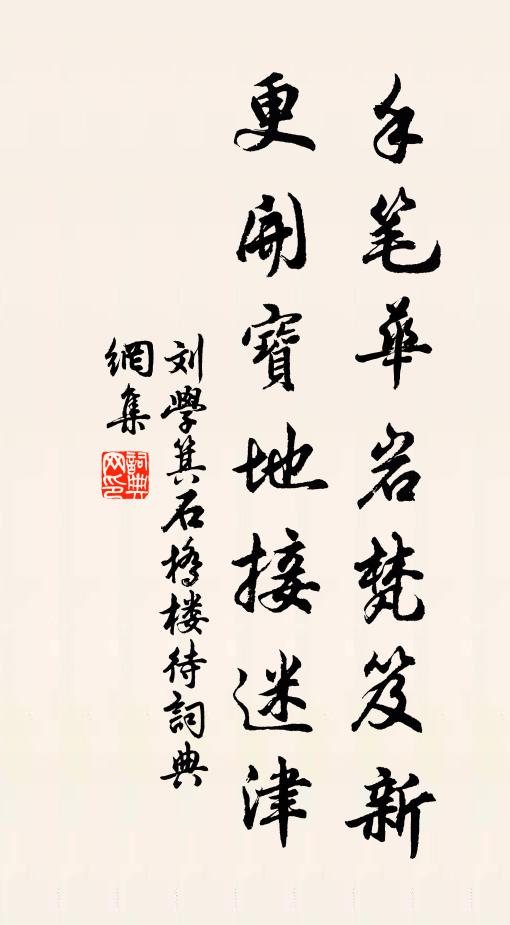 手笔華岩梵笈新
更開寶地接迷津
刘學箕石橋楼待詞典
網集
詞典网印